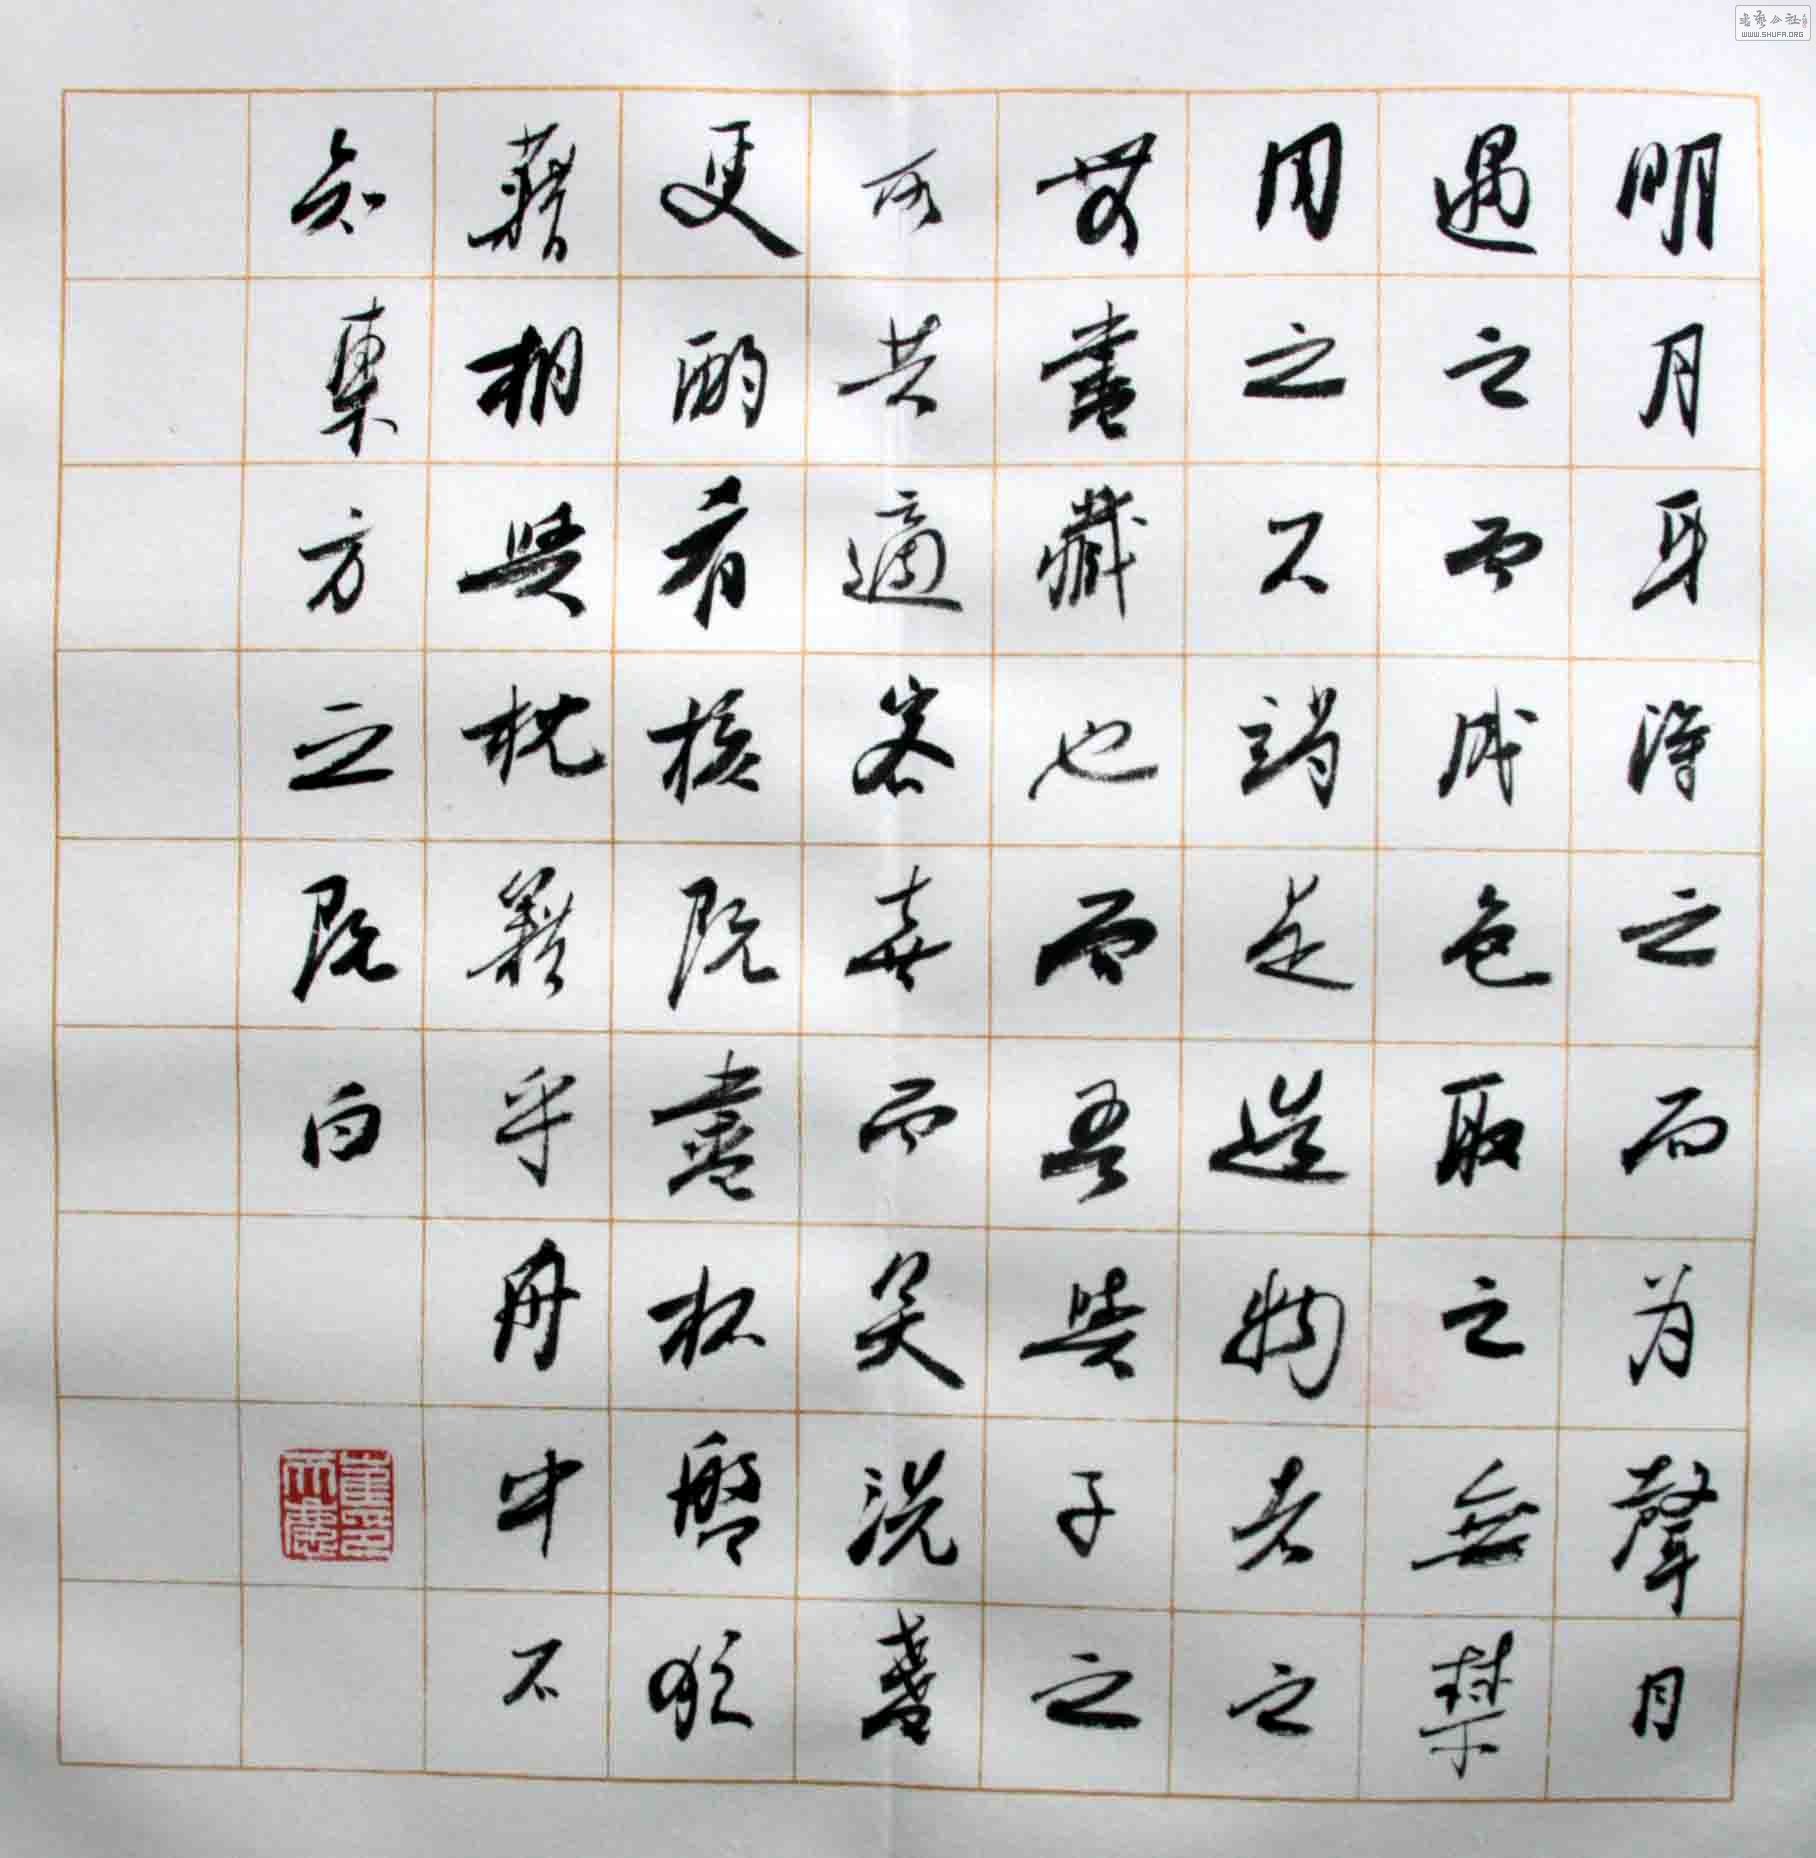 明月耳得之而为聲目
遇之而成色取之無禁
用之不竭是造物者之
無盡藏也而吾與子之
所共適客喜而笑洗盞
更酌肴核既盡杯盤狼
藉相與枕籍乎舟中不
知東方之既白
书艺公社
WWW.SHUFA.ORG